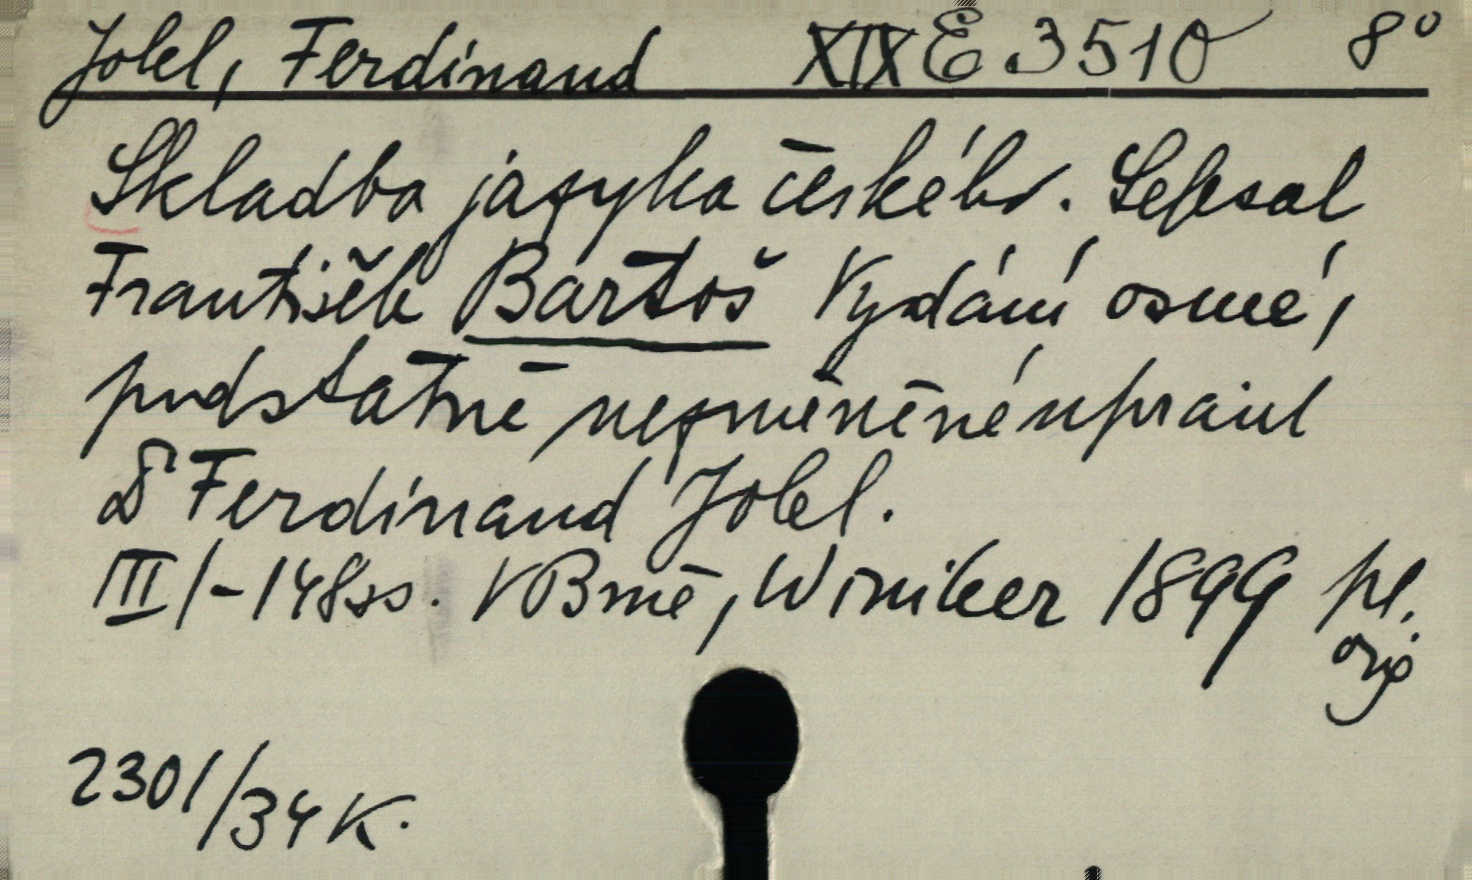 Jokl, Ferdinand XIX E 3510 8°
Skladba jazyka českého. Sepsal
František Bartoš Vydání osmé,
podstatně nezměněné upravil
Dr Ferdinand Jokl.
III/-148ss. V Brně, Winiker 1899 pl.
orig
2301/34 K.